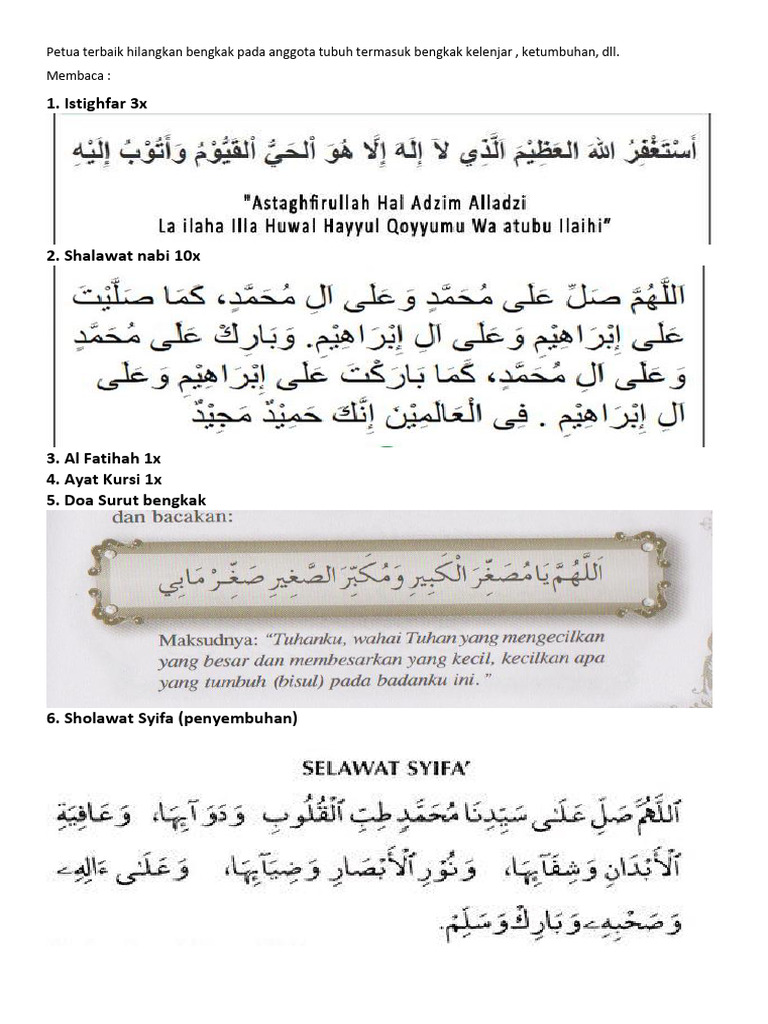 Petua terbaik hilangkan bengkak pada anggota tubuh termasuk bengkak kelenjar , ketumbuhan, dll.
Membaca :
1. Istighfar 3x
أَسْتَغْفِرُ اللهَ العَظِيْمَ الَّذِي لَا إِلَهَ إِلَّا هُوَ اْلحَيُّ اْلقَيُّوْمُ وَأَتُوْبُ إِلَيْهِ
"Astaghfirullah Hal Adzim Alladzi
La ilaha Illa Huwal Hayyul Qoyyumu Wa atubu Ilaihi”
2. Shalawat nabi 10x
اللَّهُمَّ صَلِّ عَلَى مُحَمَّدٍ وَعَلَى الِ مُحَمَّدٍ، كَمَا صَلَّيْتَ
عَلَى إِبْرَاهِيْمِ وَعَلَى الِ إِبْرَاهِيْمِ. وَبَارِكْ عَلَى مُحَمَّدٍ
وَعَلَى الِ مُحَمَّدٍ، كَمَا بَارَكْتَ عَلَى إِبْرَاهِيْمِ وَعَلَى
الِ إِبْرَاهِيْمِ . فِى الْعَالَمِيْنَ إِنَّكَ حَمِيْدٌ مَجِيْدٌ
3. Al Fatihah 1x
4. Ayat Kursi 1x
5. Doa Surut bengkak
dan bacakan:
اَللَّهُمَّ يَا مُصَغِّرَ الْكَبِيرِ وَمُكَبِّرَ الصَّغِيرِ صَغِّرْ مَابِي
Maksudnya: “Tuhanku, wahai Tuhan yang mengecilkan
yang besar dan membesarkan yang kecil, kecilkan apa
yang tumbuh (bisul) pada badanku ini.”
6. Sholawat Syifa (penyembuhan)
SELAWAT SYIFA’
ٱللَّهُمَّ صَلِّ عَلَىٰ سَيِّدِنَا مُحَمَّدٍ طِبِّ ٱلْقُلُوبِ وَدَوَآئِهَا، وَعَافِيَةِ
ٱلْأَبْدَانِ وَشِفَآئِهَا، وَنُورِ ٱلْأَبْصَارِ وَضِيَآئِهَا، وَعَلَىٰ ءَالِهِۦ
وَصَحْبِهِۦ وَبَارِكْ وَسَلِّمْ.